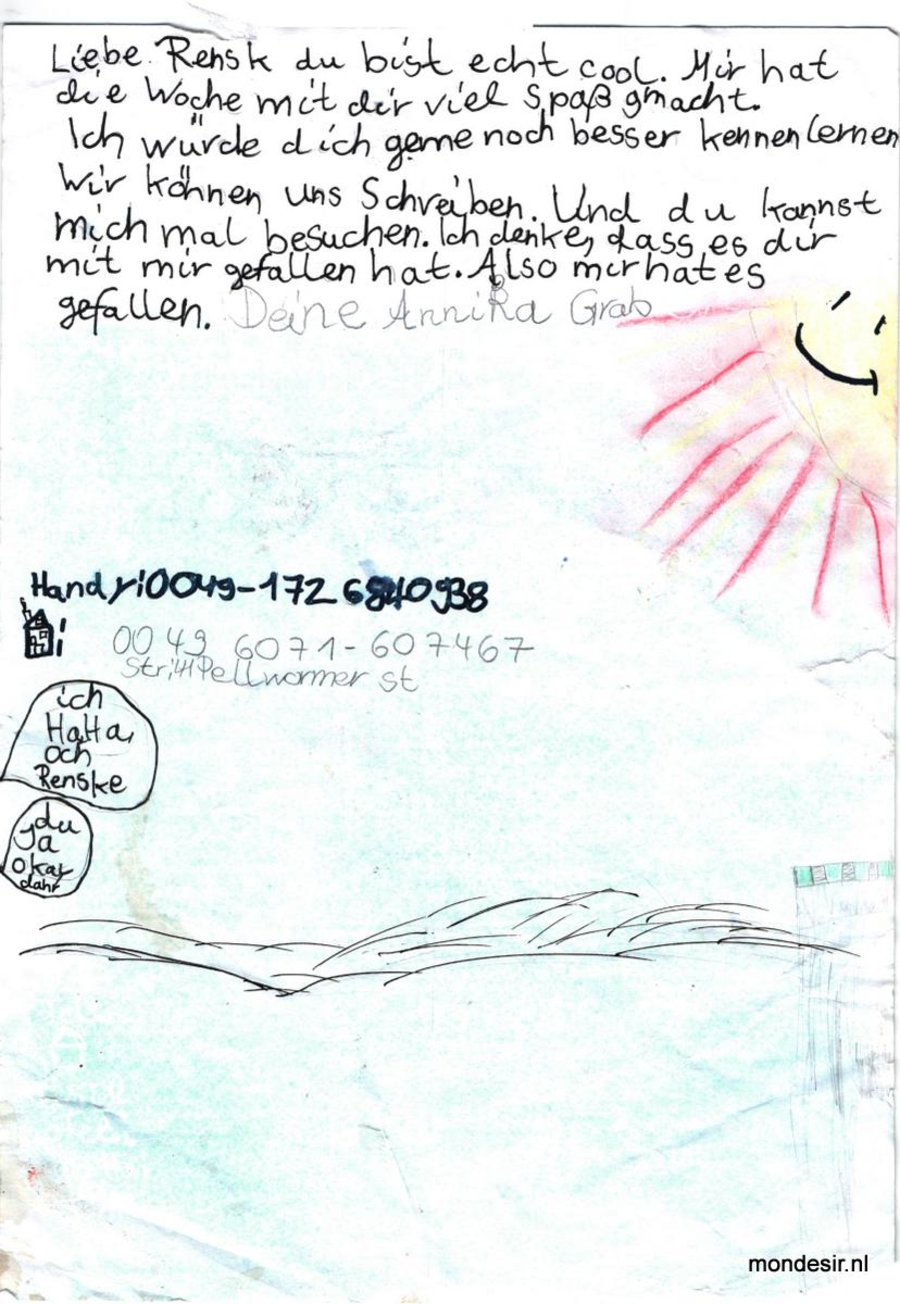 Liebe Rensk du bist echt cool. Mir hat
die Woche mit dir viel Spaß gmacht.
Ich würde dich gerne noch besser kennenlernen
Wir können uns Schreiben. Und du kannst
mich mal besuchen. Ich denke, dass es dir
mit mir gefallen hat. Also mir hat es
gefallen. Deine Annika Grab
Handy: 0049-172 6840938
: 0049 6071-607467
Pellwormer st
ich
HaHa,
och
Renske
du
ja
okay
dahr
mondesir.nl